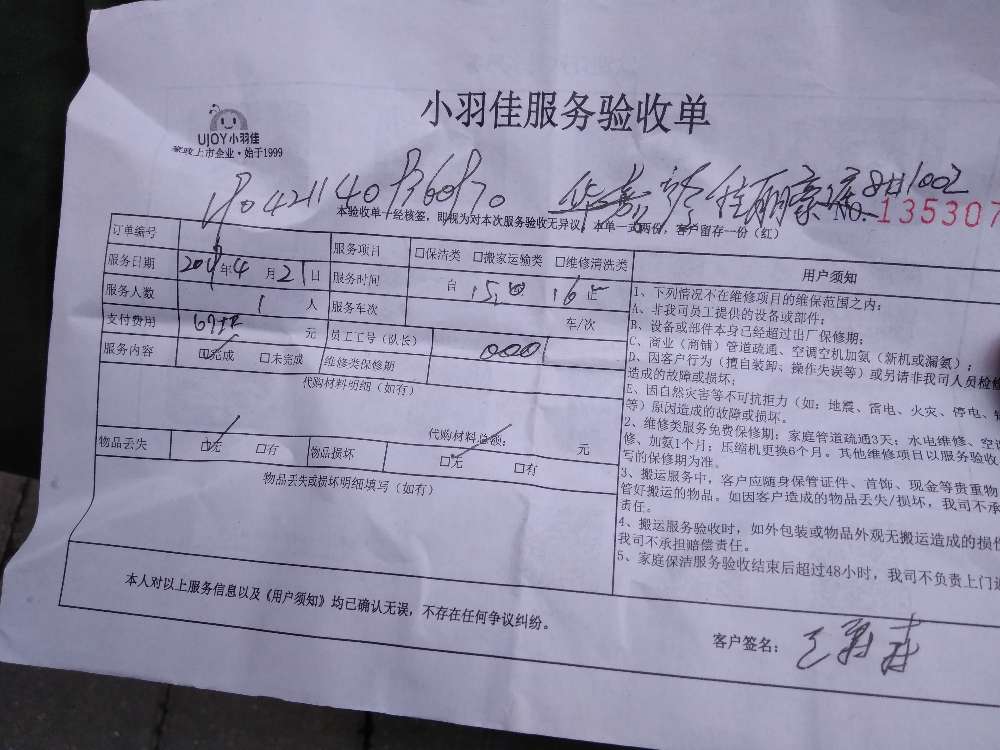 小羽佳服务验收单
UJOY小羽佳
家政上市企业·始于1999
8井1002
NO. 135307
本验收单一经核签，即视为对本次服务验收无异议，本单一式两份，客户留存一份（红）
订单编号
服务项目 □保洁类 □搬家运输类 □维修清洗类
服务日期 年4月21日
服务时间 自 15:00 16 止
服务人数 1 人
服务车次 车/次
支付费用 元
员工工号（队长） 000
服务内容 □完成 □未完成
维修类保修期
代购材料明细（如有）
代购材料总额： 元
物品丢失 □无 □有
物品损坏 □无 □有
物品丢失或损坏明细填写（如有）
用户须知
1、下列情况不在维修项目的维保范围之内：
A、非我司员工提供的设备或部件；
B、设备或部件本身已经超过出厂保修期；
C、商业（商铺）管道疏通、空调空机加氨（新机或漏氨）
D、因客户行为（擅自装卸、操作失误等）或另请非我司人员检修
造成的故障或损坏；
E、因自然灾害等不可抗拒力（如：地震、雷电、火灾、停电、
等）原因造成的故障或损坏。
2、维修类服务免费保修期：家庭管道疏通3天；水电维修、空
修、加氨1个月；压缩机更换6个月。其他维修项目以服务验收
写的保修期为准。
3、搬运服务中，客户应随身保管证件、首饰、现金等贵重物
管好搬运的物品。如因客户造成的物品丢失/损坏，我司不承
责任。
4、搬运服务验收时，如外包装或物品外观无搬运造成的损
我司不承担赔偿责任。
5、家庭保洁服务验收结束后超过48小时，我司不负责上门
本人对以上服务信息以及《用户须知》均已确认无误，不存在任何争议纠纷。
客户签名：